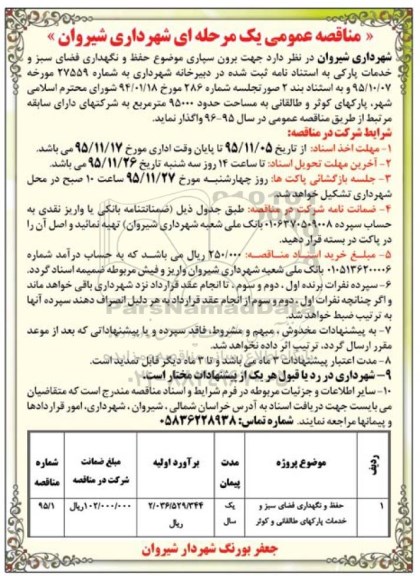 « مناقصه عمومی یک مرحله ای شهرداری شیروان »
شهرداری شیروان در نظر دارد جهت برون سپاری موضوع حفظ و نگهداری فضای سبز و
خدمات پارکی به استناد نامه ثبت شده در دبیرخانه شهرداری به شماره ۲۷۵۵۹ مورخه
۹۵/۱۰/۰۷ و به استناد بند ۲ صورتجلسه شماره ۲۸۶ مورخ ۹۴/۰۱/۱۸ شورای محترم اسلامی
شهر، پارکهای کوثر و طالقانی به مساحت حدود ۹۵۰۰۰ مترمربع به شرکتهای دارای سابقه
مرتبط از طریق مناقصه عمومی در سال ۹۵-۹۶ واگذار نماید.
شرایط شرکت در مناقصه:
۱- مهلت اخذ اسناد: از تاریخ ۹۵/۱۱/۰۵ تا پایان وقت اداری مورخ ۹۵/۱۱/۱۷ می باشد.
۲- آخرین مهلت تحویل اسناد: تا ساعت ۱۴ روز سه شنبه تاریخ ۹۵/۱۱/۲۶ می باشد.
۳- جلسه بازگشائی پاکت ها: روز چهارشنبه مورخ ۹۵/۱۱/۲۷ ساعت ۱۰ صبح در محل
شهرداری تشکیل خواهد شد.
۴- ضمانت نامه شرکت در مناقصه: طبق جدول ذیل (ضمانتنامه بانکی یا واریز نقدی به
حساب سپرده ۰۱۰۶۳۷۰۵۰۹۰۰۸ بانک ملی شعبه شهرداری شیروان) تهیه نمائید و اصل آن را
در پاکت در بسته قرار دهید.
۵- مبلغ خرید اسناد مناقصه: ۲۵۰/۰۰۰ ریال می باشد که به حساب درآمد شماره
۰۱۰۵۱۳۶۲۰۰۰۶ بانک ملی شعبه شهرداری شیروان واریز و فیش مربوطه ضمیمه اسناد گردد.
۶- سپرده نفرات برنده اول ، دوم و سوم ، تا انجام عقد قرارداد نزد شهرداری باقی خواهد ماند
و اگر چنانچه نفرات اول ، دوم و سوم از انجام عقد قرارداد به هر دلیل انصراف دهند سپرده آنها
به ترتیب ضبط خواهد شد.
۷- به پیشنهادات مخدوش ، مبهم و مشروط، فاقد سپرده و یا پیشنهاداتی که بعد از موعد
مقرر ارسال گردد، ترتیب اثر داده نخواهد شد.
۸- مدت اعتبار پیشنهادات ۳ ماه می باشد و تا ۳ ماه دیگر قابل تمدید است.
۹- شهرداری در رد یا قبول هر یک از پیشنهادات مختار است.
۱۰- سایر اطلاعات و جزئیات مربوطه در فرم شرایط و اسناد مناقصه مندرج است که متقاضیان
می بایست جهت دریافت اسناد به آدرس خراسان شمالی ، شیروان ، شهرداری، امور قراردادها
و پیمانها مراجعه نمایند. شماره تماس: ۰۵۸۳۶۲۲۸۹۳۸
ردیف موضوع پروژه مدت پیمان برآورد اولیه مبلغ ضمانت شرکت در مناقصه شماره مناقصه
۱ حفظ و نگهداری فضای سبز و خدمات پارکهای طالقانی و کوثر یک سال ۲/۰۳۶/۵۲۹/۳۴۴ ریال ۱۰۲/۰۰۰/۰۰۰ ریال ۹۵/۱
جعفر بورنگ شهردار شیروان